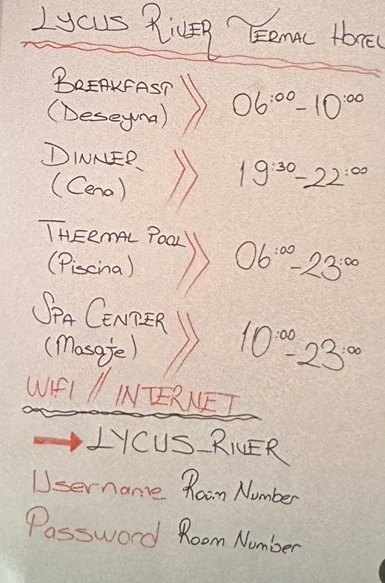 LYCUS RIVER TERMAL HOTEL
BREAKFAST
(Deseyuna)
06:00-10:00
DINNER
(Cena)
19:30-22:00
THERMAL POOL
(Piscina)
06:00-23:00
SPA CENTER
(Masaje)
10:00-23:00
WIFI // INTERNET
LYCUS_RIVER
Username Room Number
Password Room Number